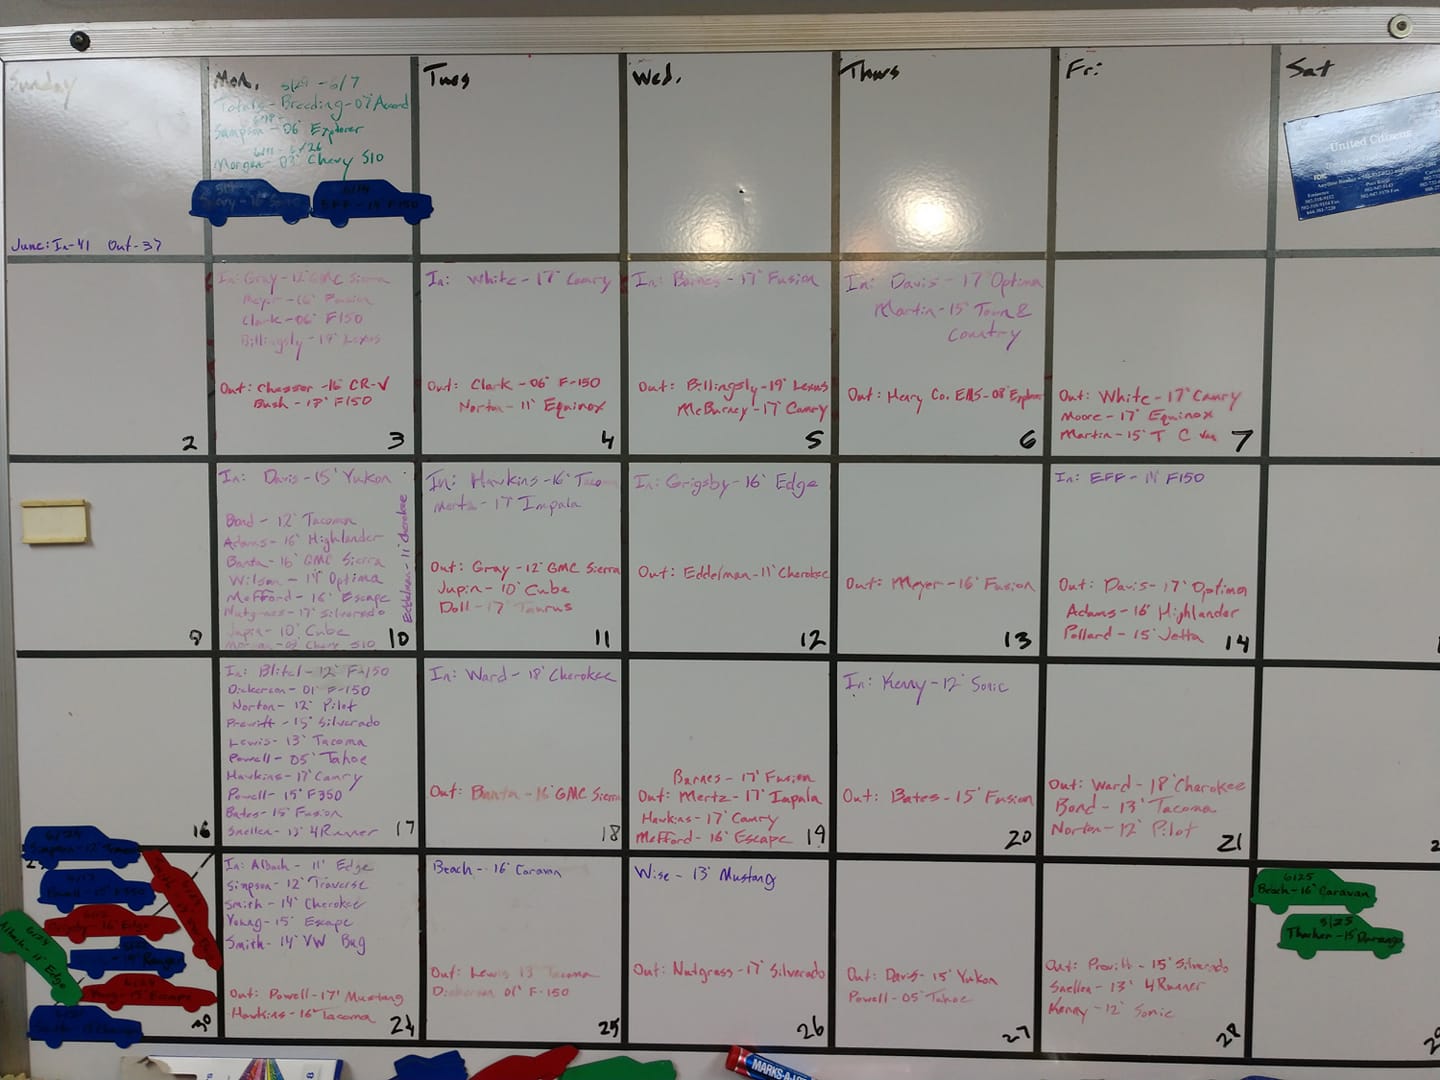 Sunday
Mon.
Tues
Wed.
Thurs
Fri
Sat
5/29 - 6/7
Totals - Breeding - 07' Accord
Sampson - 06' Explorer
6/11 - 6/26
Morgan - 03' Chevy S10
EFF - 14' F150
United Citizens
June: In-41 Out-37
In: Gray - 12' GMC Sierra
Meyer - 16' Fusion
Clark - 06' F150
Billingsly - 19' Lexus
Out: Chesser - 16' CR-V
Bush - 18' F150
3
In: White - 17' Camry
Out: Clark - 06' F-150
Norton - 11' Equinox
4
In: Barnes - 17' Fusion
Out: Billingsly - 19' Lexus
McBurney - 17' Camry
5
In: Davis - 17' Optima
Martin - 15' Town &
Country
Out: Henry Co. EMS - 08' Explorer
6
Out: White - 17' Camry
Moore - 17' Equinox
Martin - 15' T C Van
7
2
In: Davis - 15' Yukon
Bond - 12' Tacoma
Adams - 16' Highlander
Banta - 16' GMC Sierra
Wilson - 14' Optima
Mefford - 16' Escape
Nutgrass - 17' Silverado
Jupin - 10' Cube
Morgan - 03' Chevy S10
Eddelman - 11' Cherokee
10
In: Hawkins - 16' Tacoma
Mertz - 17' Impala
Out: Gray - 12' GMC Sierra
Jupin - 10' Cube
Doll - 17' Taurus
11
In: Grigsby - 16' Edge
Out: Eddelman - 11' Cherokee
12
Out: Meyer - 16' Fusion
13
In: EFF - 14' F150
Out: Davis - 17' Optima
Adams - 16' Highlander
Pollard - 15' Jetta
14
9
In: Blitel - 12' F-150
Dickerson - 01' F-150
Norton - 12' Pilot
Prewitt - 15' Silverado
Lewis - 13' Tacoma
Powell - 05' Tahoe
Hawkins - 17' Camry
Powell - 15' F350
Bates - 15' Fusion
Snellen - 13' 4Runner
17
In: Ward - 18' Cherokee
Out: Banta - 16' GMC Sierra
18
Barnes - 17' Fusion
Out: Mertz - 17' Impala
Hawkins - 17' Camry
Mefford - 16' Escape
19
In: Kenny - 12' Sonic
Out: Bates - 15' Fusion
20
Out: Ward - 18' Cherokee
Bond - 13' Tacoma
Norton - 12' Pilot
21
16
6/24
Simpson - 12' Traverse
Powell - 15' F350
Grigsby - 16' Edge
Ranger
6/24
Albach - 11' Edge
Young - 15' Escape
30
In: Albach - 11' Edge
Simpson - 12' Traverse
Smith - 14' Cherokee
Young - 15' Escape
Smith - 14' VW Bug
Out: Powell - 17' Mustang
Hawkins - 16' Tacoma
24
Beach - 16' Caravan
Out: Lewis 13' Tacoma
Dickerson 01' F-150
25
Wise - 13' Mustang
Out: Nutgrass - 17' Silverado
26
Out: Davis - 15' Yukon
Powell - 05' Tahoe
27
Out: Prewitt - 15' Silverado
Snellen - 13' 4Runner
Kenny - 12' Sonic
28
6/25
Beach - 16' Caravan
5/25
Thacker - 15' Durango
29
MARKS-A-LOT